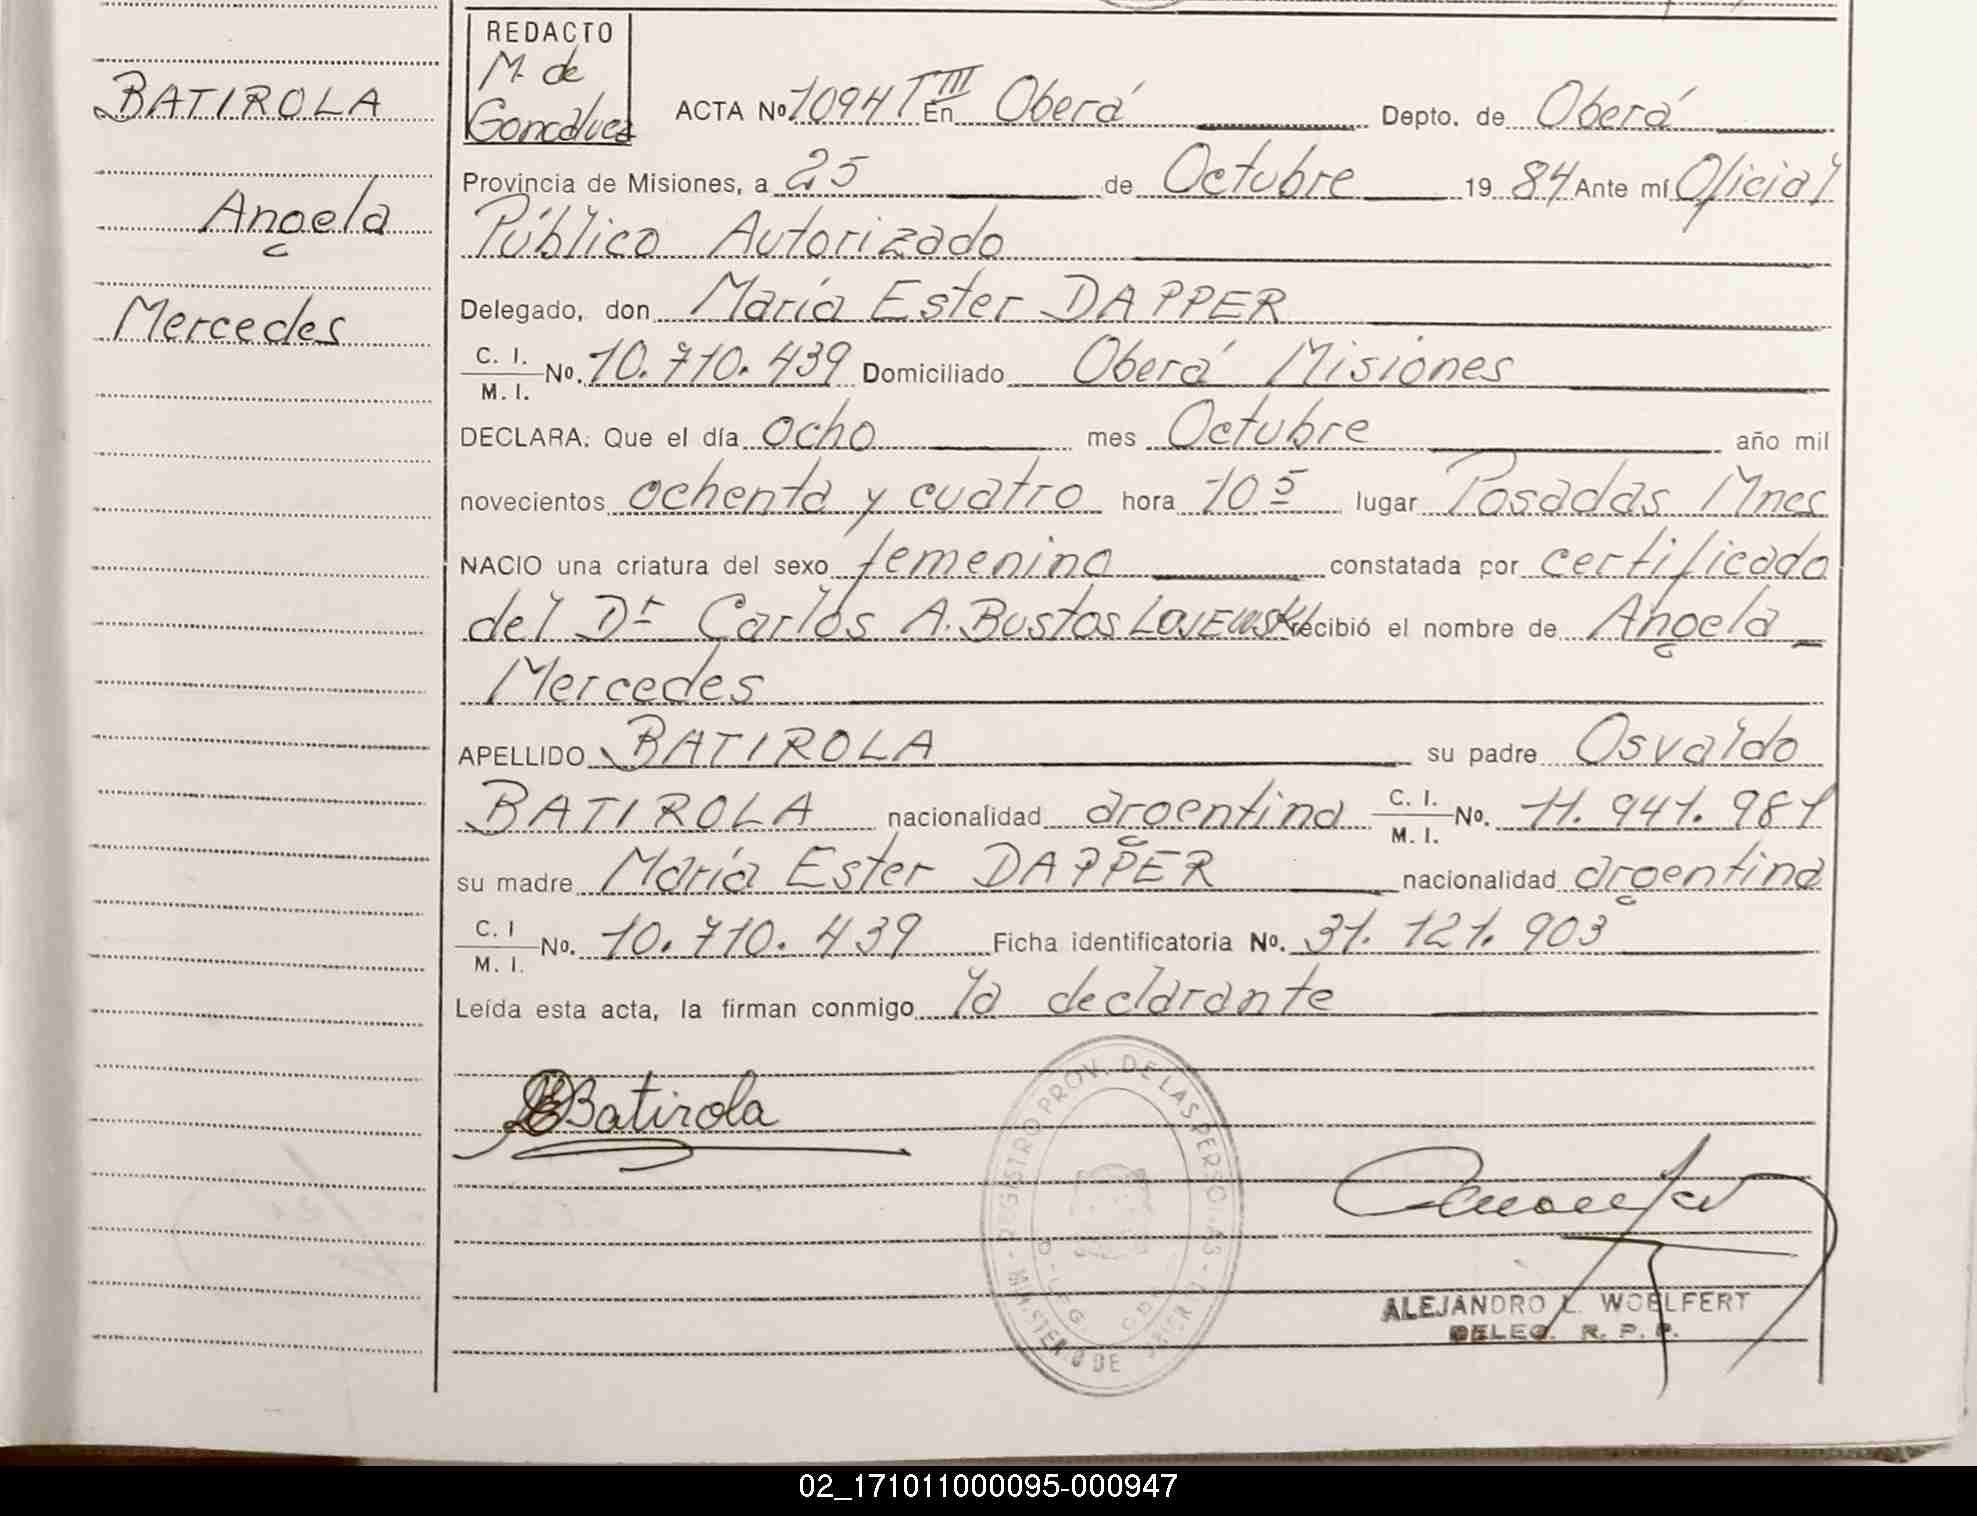 REDACTO
M. de
Goncalvez
BATIROLA
Angela
Mercedes
ACTA Nº 1094 T III En Oberá Depto. de Oberá
Provincia de Misiones, a 25 de Octubre 19 84 Ante mí Oficial
Público Autorizado
Delegado, don María Ester DAPPER
C. I. M. I. Nº. 10.710.439 Domiciliado Oberá Misiones
DECLARA: Que el día ocho mes Octubre año mil
novecientos ochenta y cuatro hora 10 5 lugar Posadas Mnes
NACIO una criatura del sexo femenino constatada por certificado
del Dr Carlos A. Bustos LOJEWSKI recibió el nombre de Angela
Mercedes
APELLIDO BATIROLA su padre Osvaldo
BATIROLA nacionalidad argentina C. I. M. I. Nº. 11.941.981
su madre María Ester DAPPER nacionalidad argentina
C. I M. I. Nº. 10.710.439 Ficha identificatoria Nº. 31.121.903
Leída esta acta, la firman conmigo la declarante
Batirola
REGISTRO PROV. DE LAS PERSONAS
MINISTERIO DE
ALEJANDRO L. WOELFERT
DELEG. R. P. P.
02_171011000095-000947